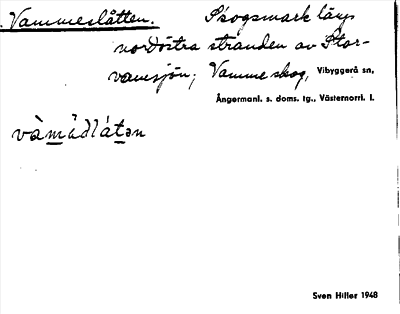 Vammeslåtten. Skogsmark längs
nordöstra stranden av Stor-
vamsjön; Vammeskog, Vibyggerå sn,
Ångermanl. s. doms. tg., Västernorrl. l.
Sven Hiller 1948